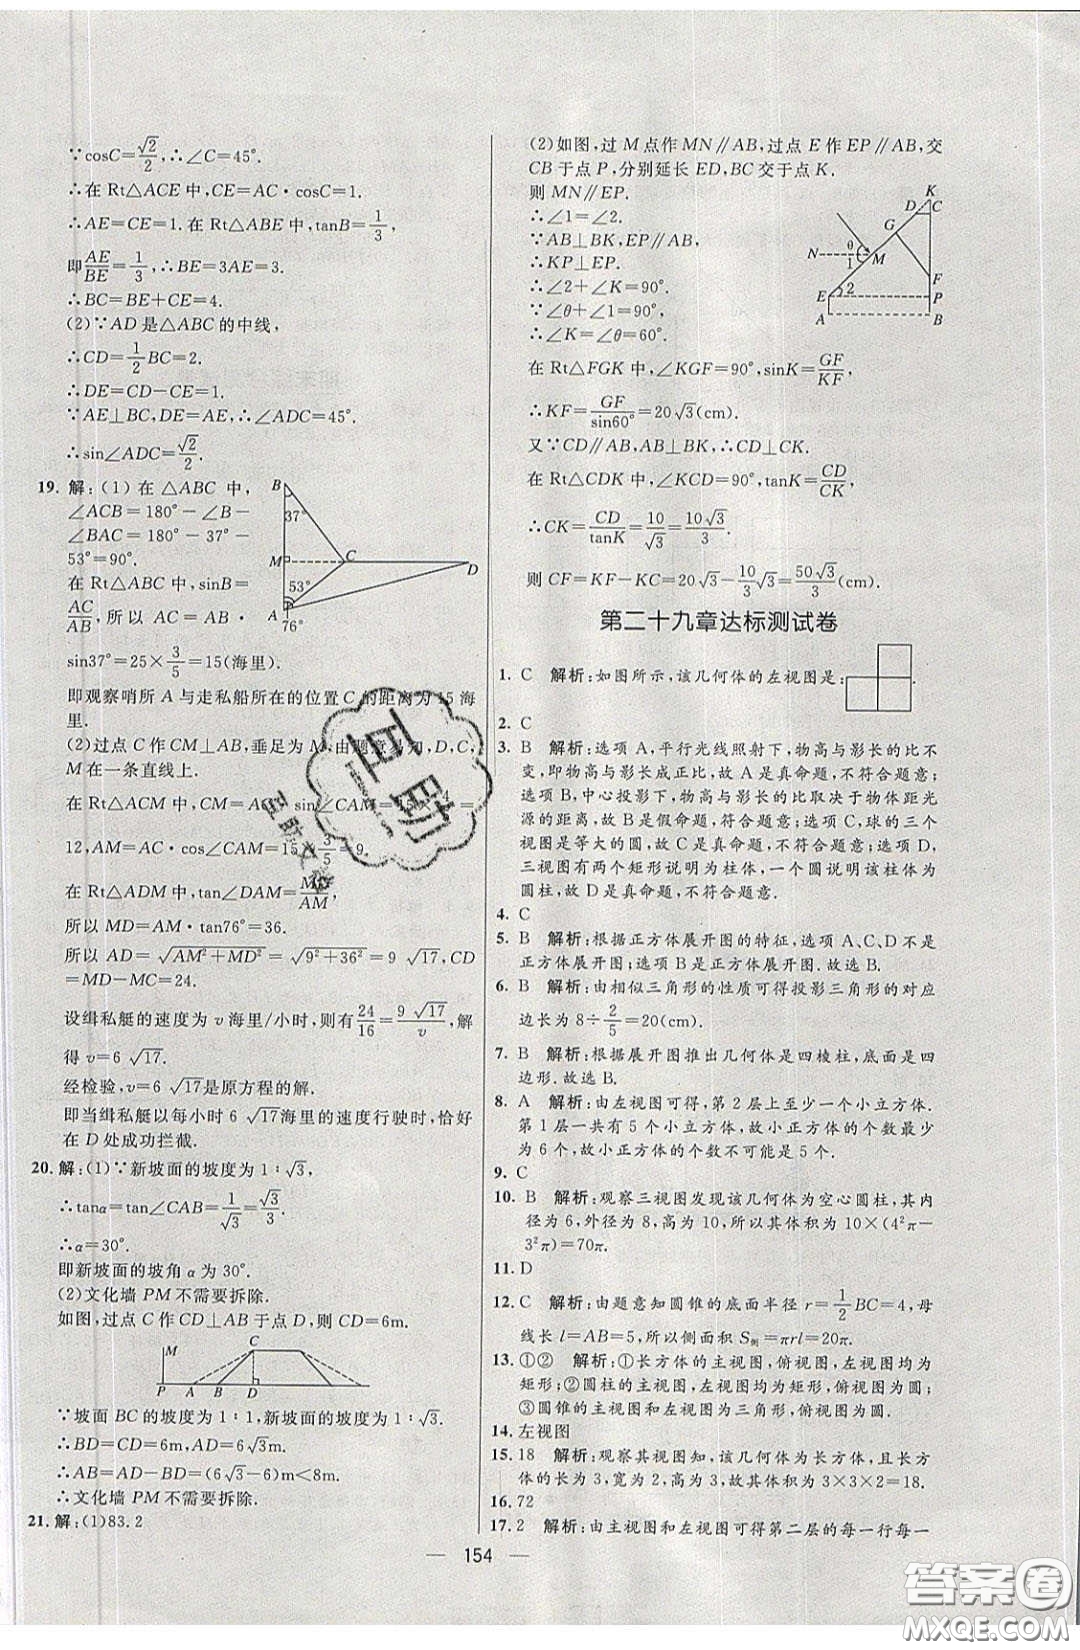 ∵cosC=√2/2,∴∠C=45°.
∴在 Rt△ACE 中,CE=AC·cosC=1.
∴AE=CE=1.在 Rt△ABE 中,tanB=1/3,
即AE/BE=1/3,∴BE=3AE=3.
∴BC=BE+CE=4.
(2)∵AD 是△ABC 的中线,
∴CD=1/2BC=2.
∴DE=CD-CE=1.
∵AE⊥BC,DE=AE,∴∠ADC=45°.
∴sin∠ADC=√2/2.
19. 解:(1)在 △ABC 中,
∠ACB=180°-∠B-
∠BAC=180°-37°-
53°=90°.
在 Rt△ABC 中,sinB=
AC/AB,所以 AC=AB·
sin37°=25×3/5=15(海里).
即观察哨所 A 与走私船所在的位置 C 的距离为 15 海
里.
(2)过点 C 作 CM⊥AB,垂足为 M,由题意易知,D,C,
M 在一条直线上.
在 Rt△ACM 中,CM=AC·sin∠CAM=15×4/5=
12,AM=AC·cos∠CAM=15×3/5=9.
在 Rt△ADM 中,tan∠DAM=MD/AM,
所以 MD=AM·tan76°=36.
所以 AD=√(AM²+MD²)=√(9²+36²)=9√17,CD
=MD-MC=24.
设缉私艇的速度为 v 海里/小时,则有24/16=9√17/v,解
得 v=6√17.
经检验,v=6√17是原方程的解.
即当缉私艇以每小时 6√17海里的速度行驶时,恰好
在 D 处成功拦截.
20. 解:(1)∵新坡面的坡度为 1∶√3,
∴tanα=tan∠CAB=1/√3=√3/3.
∴α=30°.
即新坡面的坡角 α 为 30°.
(2)文化墙 PM 不需要拆除.
如图,过点 C 作 CD⊥AB 于点 D,则 CD=6m.
M C
P A B D
∵坡面 BC 的坡度为 1∶1,新坡面的坡度为 1∶√3.
∴BD=CD=6m,AD=6√3m.
∴AB=AD-BD=(6√3-6)m<8m.
∴文化墙 PM 不需要拆除.
21. 解:(1)83.2
B
37°
M C
D
53°
A
76°
(2)如图,过 M 点作 MN∥AB,过点 E 作 EP∥AB,交
CB于点 P,分别延长 ED,BC 交于点 K.
则 MN∥EP.
∴∠1=∠2.
∵AB⊥BK,EP∥AB,
∴KP⊥EP.
∴∠2+∠K=90°.
∵∠θ+∠1=90°,
∴∠K=∠θ=60°.
K
D C
G
θ
N 1 M
F
E 2 P
A B
在 Rt△FGK 中,∠KGF=90°,sinK=GF/KF,
∴KF=GF/sin60°=20√3(cm).
又∵CD∥AB,AB⊥BK,∴CD⊥CK.
在 Rt△CDK 中,∠KCD=90°,tanK=CD/CK,
∴CK=CD/tanK=10/√3=10√3/3.
则 CF=KF-KC=20√3-10/3√3=50√3/3(cm).
第二十九章达标测试卷
1. C 解析:如图所示,该几何体的左视图是: .
2. C
3. B 解析:选项 A,平行光线照射下,物高与影长的比不
变,即物高与影长成正比,故 A 是真命题,不符合题意;
选项 B,中心投影下,物高与影长的比取决于物体距光
源的距离,故 B 是假命题,符合题意;选项 C,球的三个
视图是等大的圆,故 C 是真命题,不符合题意;选项 D,
三视图有两个矩形说明为柱体,一个圆说明该柱体为
圆柱,故 D 是真命题,不符合题意.
4. C
5. B 解析:根据正方体展开图的特征,选项 A、C、D 不是
正方体展开图;选项 B 是正方体展开图.故选 B.
6. B 解析:由相似三角形的性质可得投影三角形的对应
边长为 8÷2/5=20(cm).
7. B 解析:根据展开图推出几何体是四棱柱,底面是四
边形.故选 B.
8. A 解析:由左视图可得,第 2 层上至少一个小立方体.
第 1 层一共有 5 个小立方体,故小正方体的个数最少
为 6 个,故小正方体的个数不可能是 5 个.
9. C
10. B 解析:观察三视图发现该几何体为空心圆柱,其内
径为 6,外径为 8,高为 10,所以其体积为 10×(4²π-
3²π)=70π.
11. D
12. C 解析:由题意知圆锥的底面半径 r=1/2BC=4,母
线长 l=AB=5,所以侧面积 S侧=πrl=20π.
13. ①② 解析:①长方体的主视图,俯视图,左视图均为
矩形;②圆柱的主视图,左视图均为矩形,俯视图为圆;
③圆锥的主视图和左视图均为三角形,俯视图为圆.
14. 左视图
15. 18 解析:观察其视图知,该几何体为长方体,且长方
体的长为 3,宽为 2,高为 3,故其体积为 3×3×2=18.
16. 72
17. 2 解析:由主视图和左视图可得第二层的每一行每一
— 154 —
互助
互助文档
答案圈
MXQE.COM